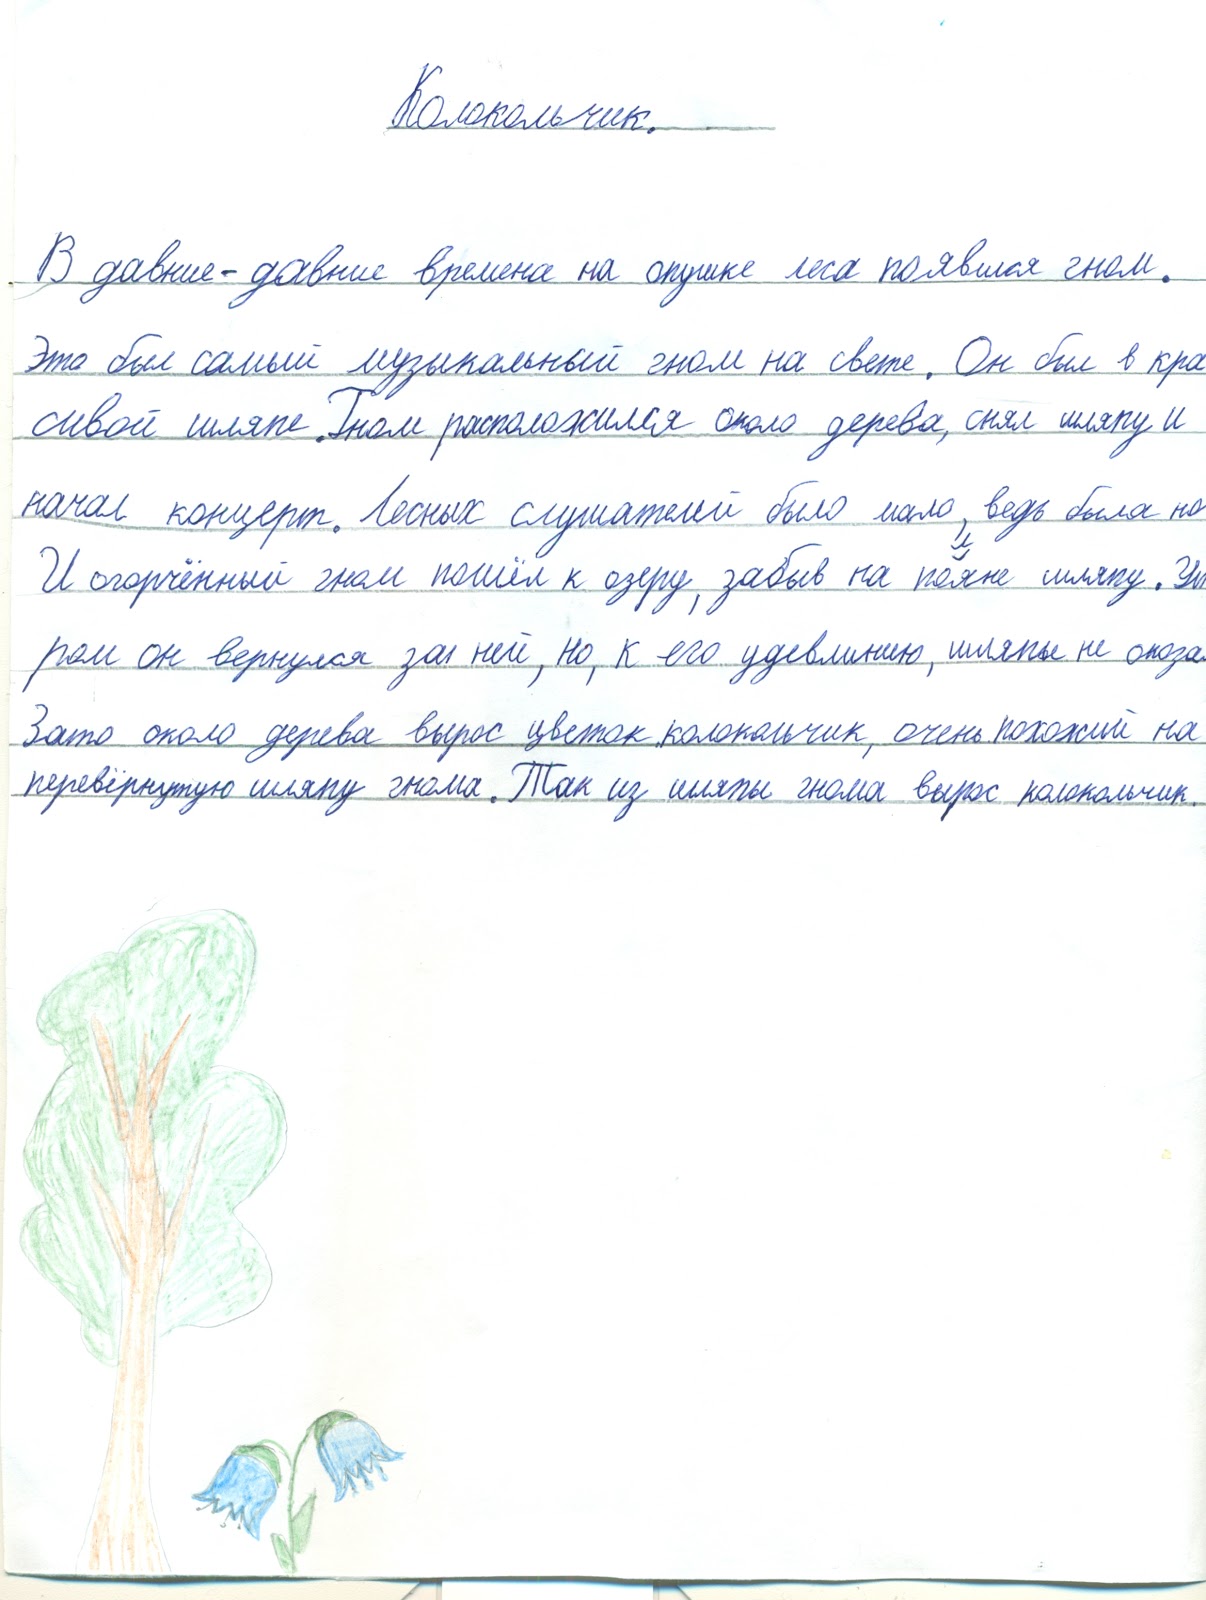 Колокольчик.
В давние-давние времена на опушке леса появился гном.
Это был самый музыкальный гном на свете. Он был в кра
сивой шляпе. Гном расположился около дерева, снял шляпу и
начал концерт. Лесных слушателей было мало, ведь была но
И огорчённый гном пошёл к озеру, забыв на поляне шляпу. Ут
ром он вернулся за ней, но, к его удивлению, шляпы не оказа
Зато около дерева вырос цветок колокольчик, очень похожий на
перевёрнутую шляпу гнома. Так из шляпы гнома вырос колокольчик.